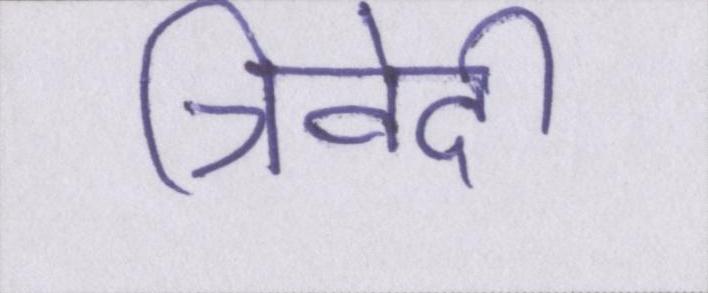 त्रिवेदी